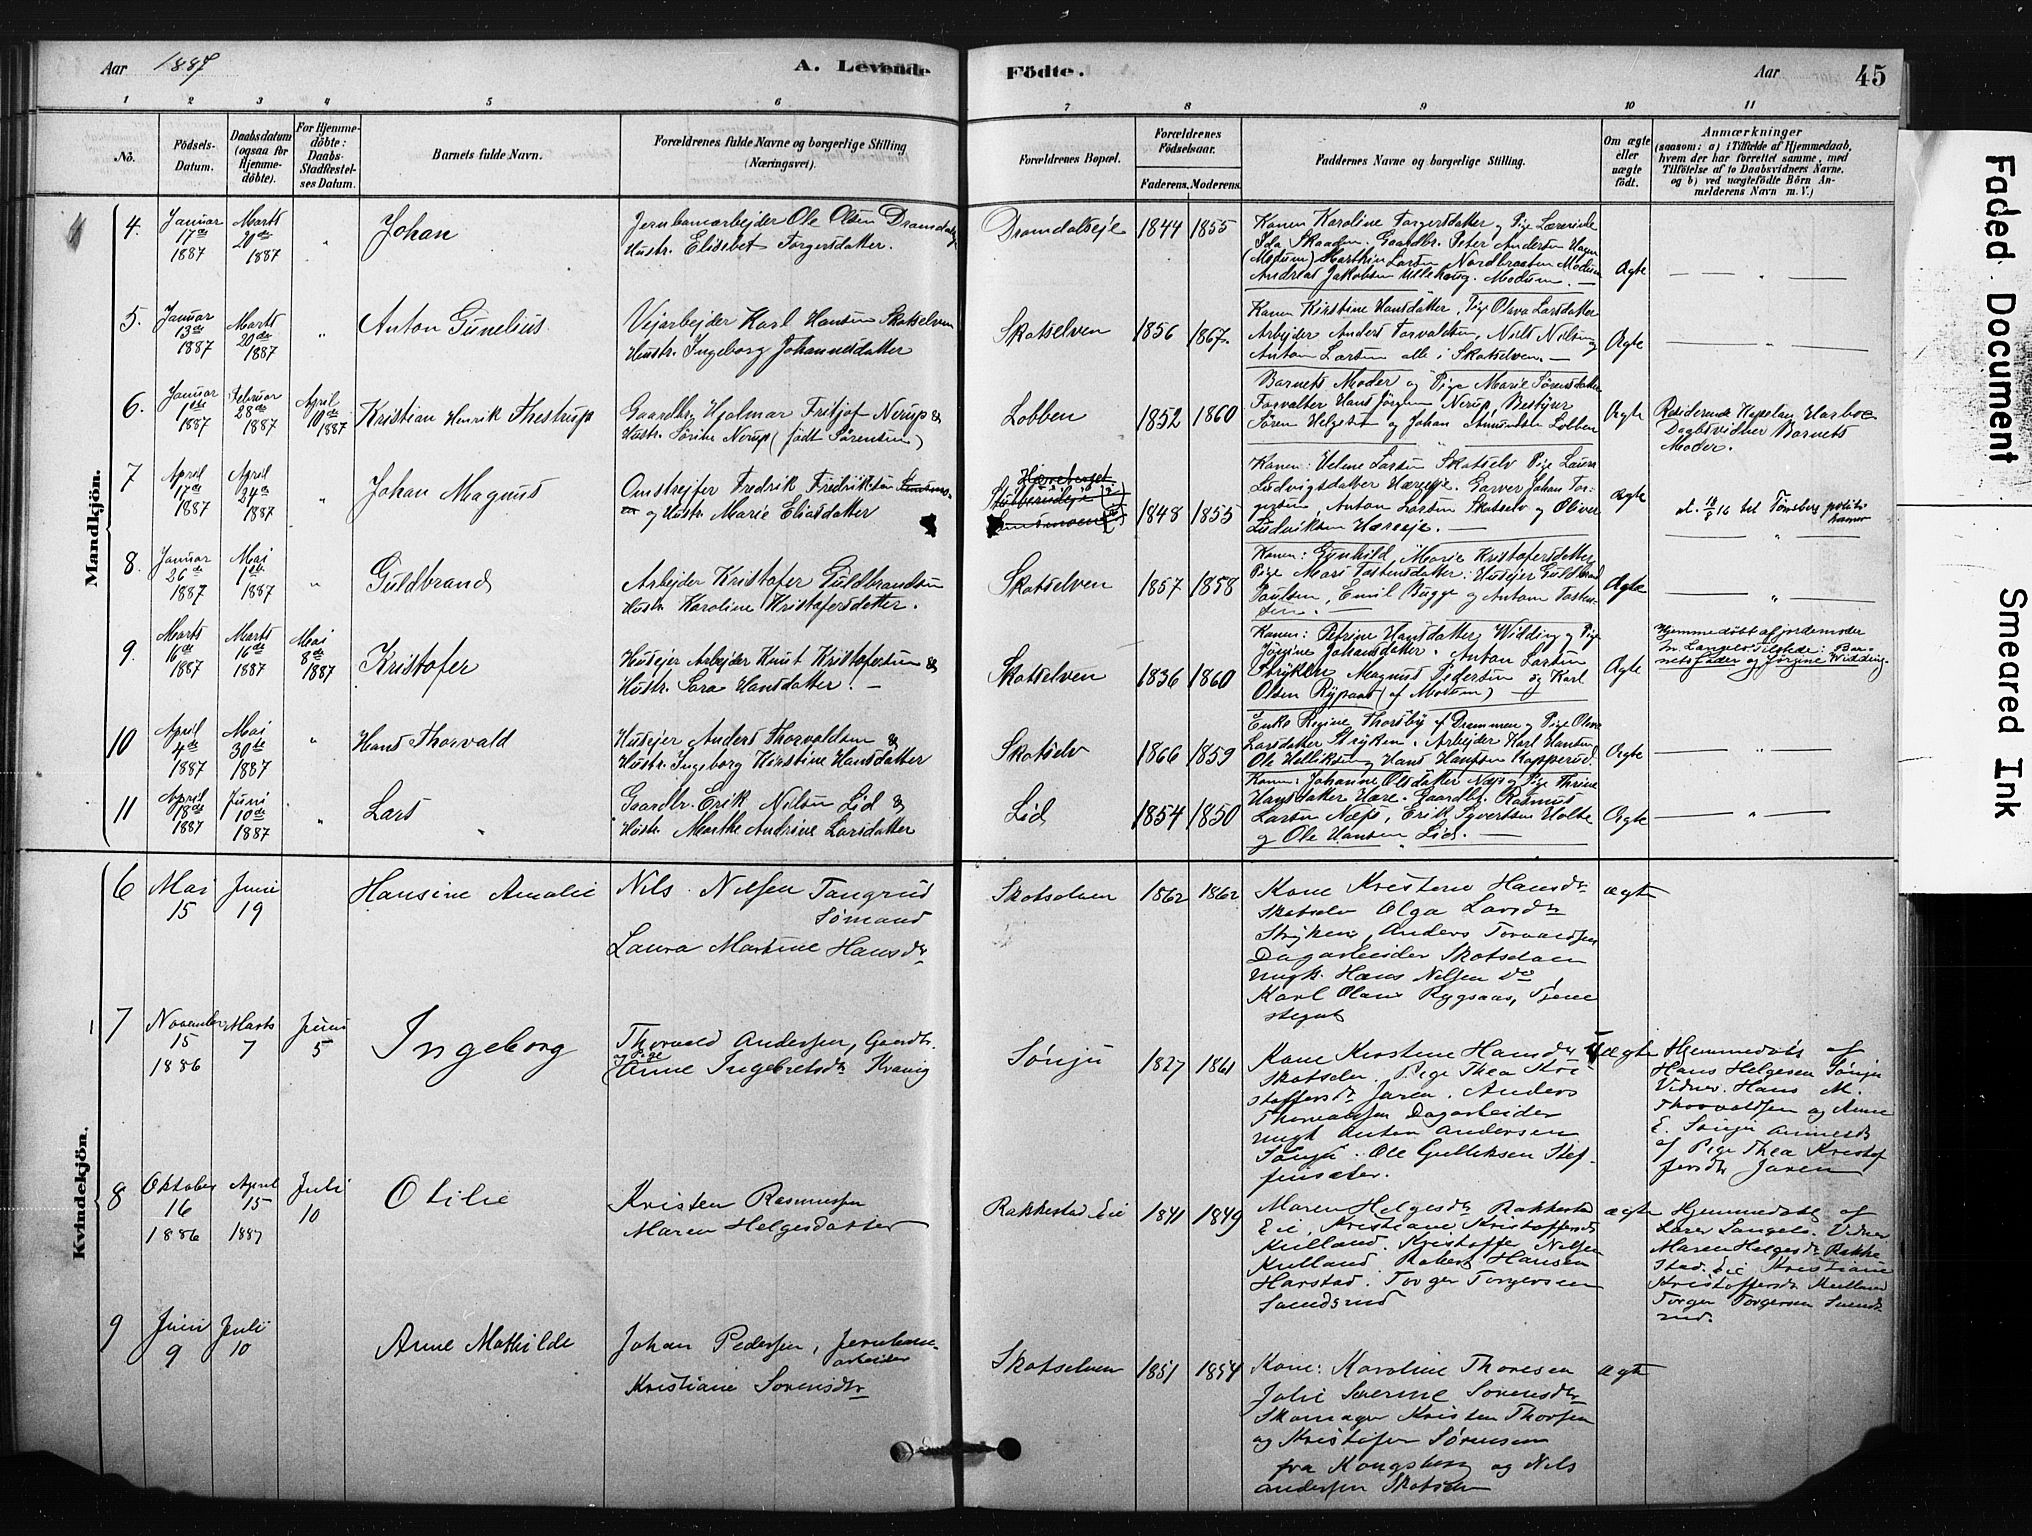 Aar 1887
A. Levende Födte.
Aar
45
1 2 3 4 5 6 7 8 9 10 11
No.
Födsels-Datum.
Daabsdatum (ogsaa for Hjemme-döbte).
For Hjemme-döbte: Daabs-Stadfæstel-ses Datum.
Barnets fulde Navn.
Forældrenes fulde Navne og borgerlige Stilling (Næringsvei).
Forældrenes Bopæl.
Forældrenes Födselsaar.
Faderens. Moderens.
Faddernes Navne og borgerlige Stilling.
Om ægte eller uægte födt.
Anmærkninger
(saasom: a) i Tilfælde af Hjemmedaab,
hvem der har forrettet samme, med
Tilföielse af to Daabsvidners Navne,
og b) ved uægtefödte Börn An-
melderens Navn m. V.)
Mandkjön.
4. Januar 17de 1887
Marts 20de 1887
Johan
Jernbanearbejder Ole Olsen Dramdalseje
Hustr. Elisebet Torgersdatter.
Dramdalseje 1844 1855
Konen Karoline Torgersdatter, Pige Lærerinde
Ida Skaaden. Gaardbr. Peter Andersen Hagen
(Modum) Marthin Larsen Nordbraaten Modum
Andreas Jakobsen Ullehoug. Modum. —
Ægte
5. Januar 13de 1887
Marts 20de 1887
Anton Gunelius
Vejarbejder Karl Hansen Skotselven
Hustr. Ingeborg Johannesdatter
Skotselven 1856 1867.
Konen Kirstine Hansdatter, Pige Olava Larsdatter
Arbejder Anders Torvaldsen, Nils Nilsen og
Anton Larsen alle i Skotselven. —
Ægte
6. Januar 1ste 1887
Februar 28de 1887
April 10de 1887
Kristian Henrik Thestrup
Gaardbr. Hjalmar Fritjof Nerup &
Hustr. Sørine Nerup (født Sørensen)
Lobben 1852 1860
Barnets Moder og Pige Marie Sørensdatter
Forvalter Hans Jörgen Nerup, Bestyrer
Søren Helgesen og Johan Amundsen Lobben
Ægte
Residerende Kapellan Harboe
Daabsvidner Barnets
Moder.
7 April 17de 1887
April 24de 1887
Johan Magnus
Omstrejfer Fredrik Fredriksen
og Hustr. Marie Eliasdatter
1848 1855
Konen: Helene Larsen Skotselv Pige Laura
Ludvigsdatter Hæreje. Garver Johan Tor-
gersen, Anton Larsen Skotselv og Oliver
Ludviksen Hæreje. —
Ægte
8. Januar 26de 1887
Mai 1ste 1887
Guldbrand
Arbejder Kristofer Guldbrandsen
Hustr. Karoline Kristofersdatter.
Skotselven 1857 1858
Konen: Gunhild Marie Kristofersdatter
Pige Mari Tostensdatter: Husejer Guldbrand
Paulsen, Emil Bugge og Anton Tosten-
sen. —
Ægte
9. Marts 16de 1887
Marts 16de 1887
Mai 8de 1887
Kristofer
Husejer Arbejder Knut Kristofersen &
Hustr. Sara Hansdatter. —
Skotselven 1836 1860
Konen: Petrine Hansdatter Widding og Pige
Jörgine Johansdatter. Anton Larsen
Stryken Magnus Pedersen og Karl
Olsen Rypaas (af Modum)
Ægte
Hjemmedøbt af jordemoder
M. Langelo Tilstede: Bar-
nets fader og Jørgine Widding.
10 April 4de 1887
Mai 30de 1887
Hans Thorvald
Husejer Anders Thorvaldsen &
Hustr. Ingeborg Kirstine Hansdatter
Skotselv 1866 1859
Enke Regine Thorsby af Drammen og Pige Olava
Larsdatter Stryken. Arbejder Karl Hansen
Ole Helliksen og Hans Hansen Kopperud.
Ægte
11 April 18de 1887
Juni 10de 1887
Lars
Gaardbr. Erik Nilsen Lid &
Hustr. Marthe Andrine Larsdatter
Lid 1854 1850
Konen: Johanne Olsdatter Næs og Pige Thrine
Hansdatter Hære. Gaardbr. Rasmus
Larsen Næss, Erik Syvertsen Holte
og Ole Hansen Lid. —
Ægte
Kvindekjön.
6 Mai 15
Juni 19
Hansine Amalie
Nils Nilsen Tangrud
Sømand
Laura Martine Hansdtr
Skotselven 1862 1862
Kone Kristene Hansdtr
Skotselv Olga Larsdtr
Stryken, Anders Torvaldsen
Dagarbeider Skotselven
ungk. Hans Nilsen do
Karl Olaus Rygsaas, Tjene
stegut
ægte
7 November 15 1886
Marts 7
Juni 5
Ingeborg
Thorvald Andersen, Gaardbr.
og Pige
Anne Ingebretsdtr Kravig
Sønju 1827 1861
Kone Kirstine Hansdtr
Skotselv. Pige Thea Kri-
stoffersdtr Jaren. Anders
Thorvaldsen Dagarbeider
ungk Anton Andersen
Sønju. Ole Gulliksen Stef-
fensæter.
Uægte
Hjemmedøbt af
Hans Helgesen Sønju
Vidner. Hans M.
Thorvaldsen og Anne
E. Sønju anmeldt
af Pige Thea Kristof
fersdtr Jaren
8 Oktober 16 1886
April 15 1887
Juli 10
Otilie
Kristen Rasmussen
Maren Helgesdatter
Rakkestad Eie 1841 1849
Maren Helgesdtr Rakkestad
Eie, Kristiane Kristoffersdtr
Kulland. Kristoffer Nilsen
Kulland. Robert Hansen
Harstad. Torger Torgersen
Svendsrud
ægte
Hjemmedøbt af
Lærer Langelo. Vidner
Maren Helgesdtr Rakke
stad. Eie Kristiane
Kristoffersdtr Kulland
Torger Torgersen Svends
rud.
9 Juni 9
Juli 10
Anne Mathilde
Johan Pedersen, Jernbane-
arbeider
Kristiane Sørensdtr
Skotselven 1851 1854
Kone: Karoline Thoresen
Jolie Severine Sørensdtr
Skomager Kristen Thorsen
og Kristofer Sørensen
fra Kongsberg og Nils
Andersen Skotselv
Ægte
Faded Document
Smeared Ink